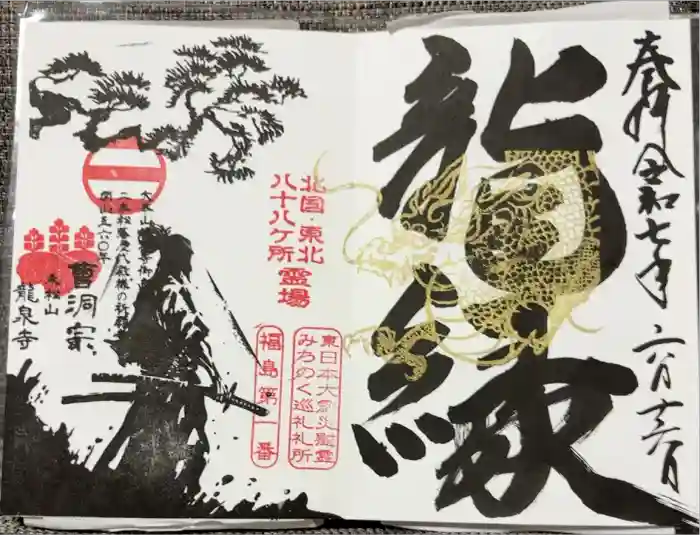 奉拝 令和七年 六月十六日
龍縁
北国・東北
八十八ケ所 霊場
東日本大震災慰霊
みちのく巡礼札所
福島第一番
曹洞宗
二本松山
龍泉寺